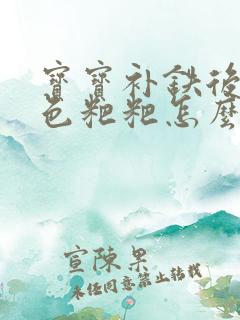 寶寶补鉄後
色粑粑怎麼
宣陳果
未经同意禁止转载